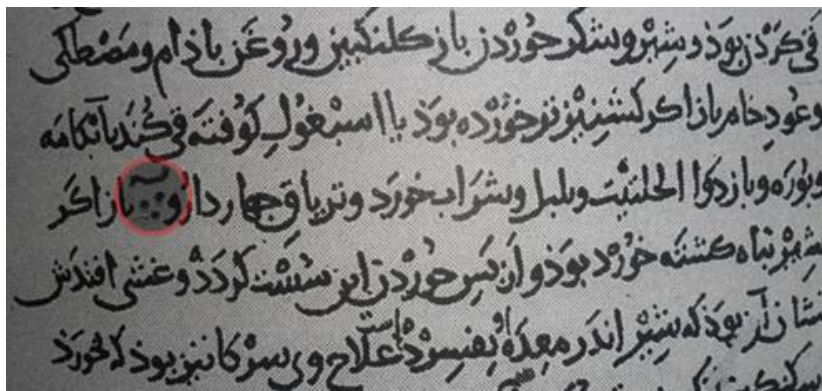 قی کردن بوذ و شیر و شکر خوردن باز کلنکبین و روغن باذام و مصطکی
و عود خام باز اکر کشنیز تر خورده بوذ یا اسبغول کوفته قی کند بآبکامه
و بوره و باز دوا الحلتیت و بلبل و شراب خورد و تریاق چهار دارو باز اکر
شیر تباه کشته خورد بوذ و از پس خوردن این سست کردد و غشی افتدش
نشان آن بوذ که شیر اندر معده بفسرد علاج وی سرکا نیز بوذ که خورد